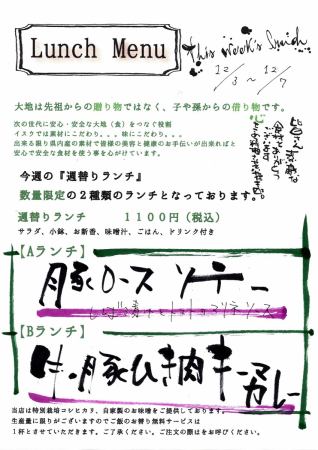 Lunch Menu
This week's lunch
12/3 ～ 12/7
大地は先祖からの贈り物ではなく、子や孫からの借り物です。
次の世代に安心・安全な大地（食）をつなぐ役割
イスクでは素材にこだわり。。。味にこだわり。。。
出来る限り県内産の素材で皆様の美容と健康のお手伝いが出来ればと
安心で安全な食材を使う事を心がけています。
今週の『週替りランチ』
数量限定の２種類のランチとなっております。
週替りランチ　１１００円（税込）
サラダ、小鉢、お新香、味噌汁、ごはん、ドリンク付き
【Aランチ】
豚ロースソテー
しば漬けとトマトのマリネソース
【Bランチ】
牛・豚ひき肉キーマカレー
当店は特別栽培コシヒカリ、自家製のお味噌をご提供しております。
生産量に限りがございますのでご飯のお替り無料サービスは
１杯とさせていただきます。ご了承ください。ご注文の際はをお呼びください。